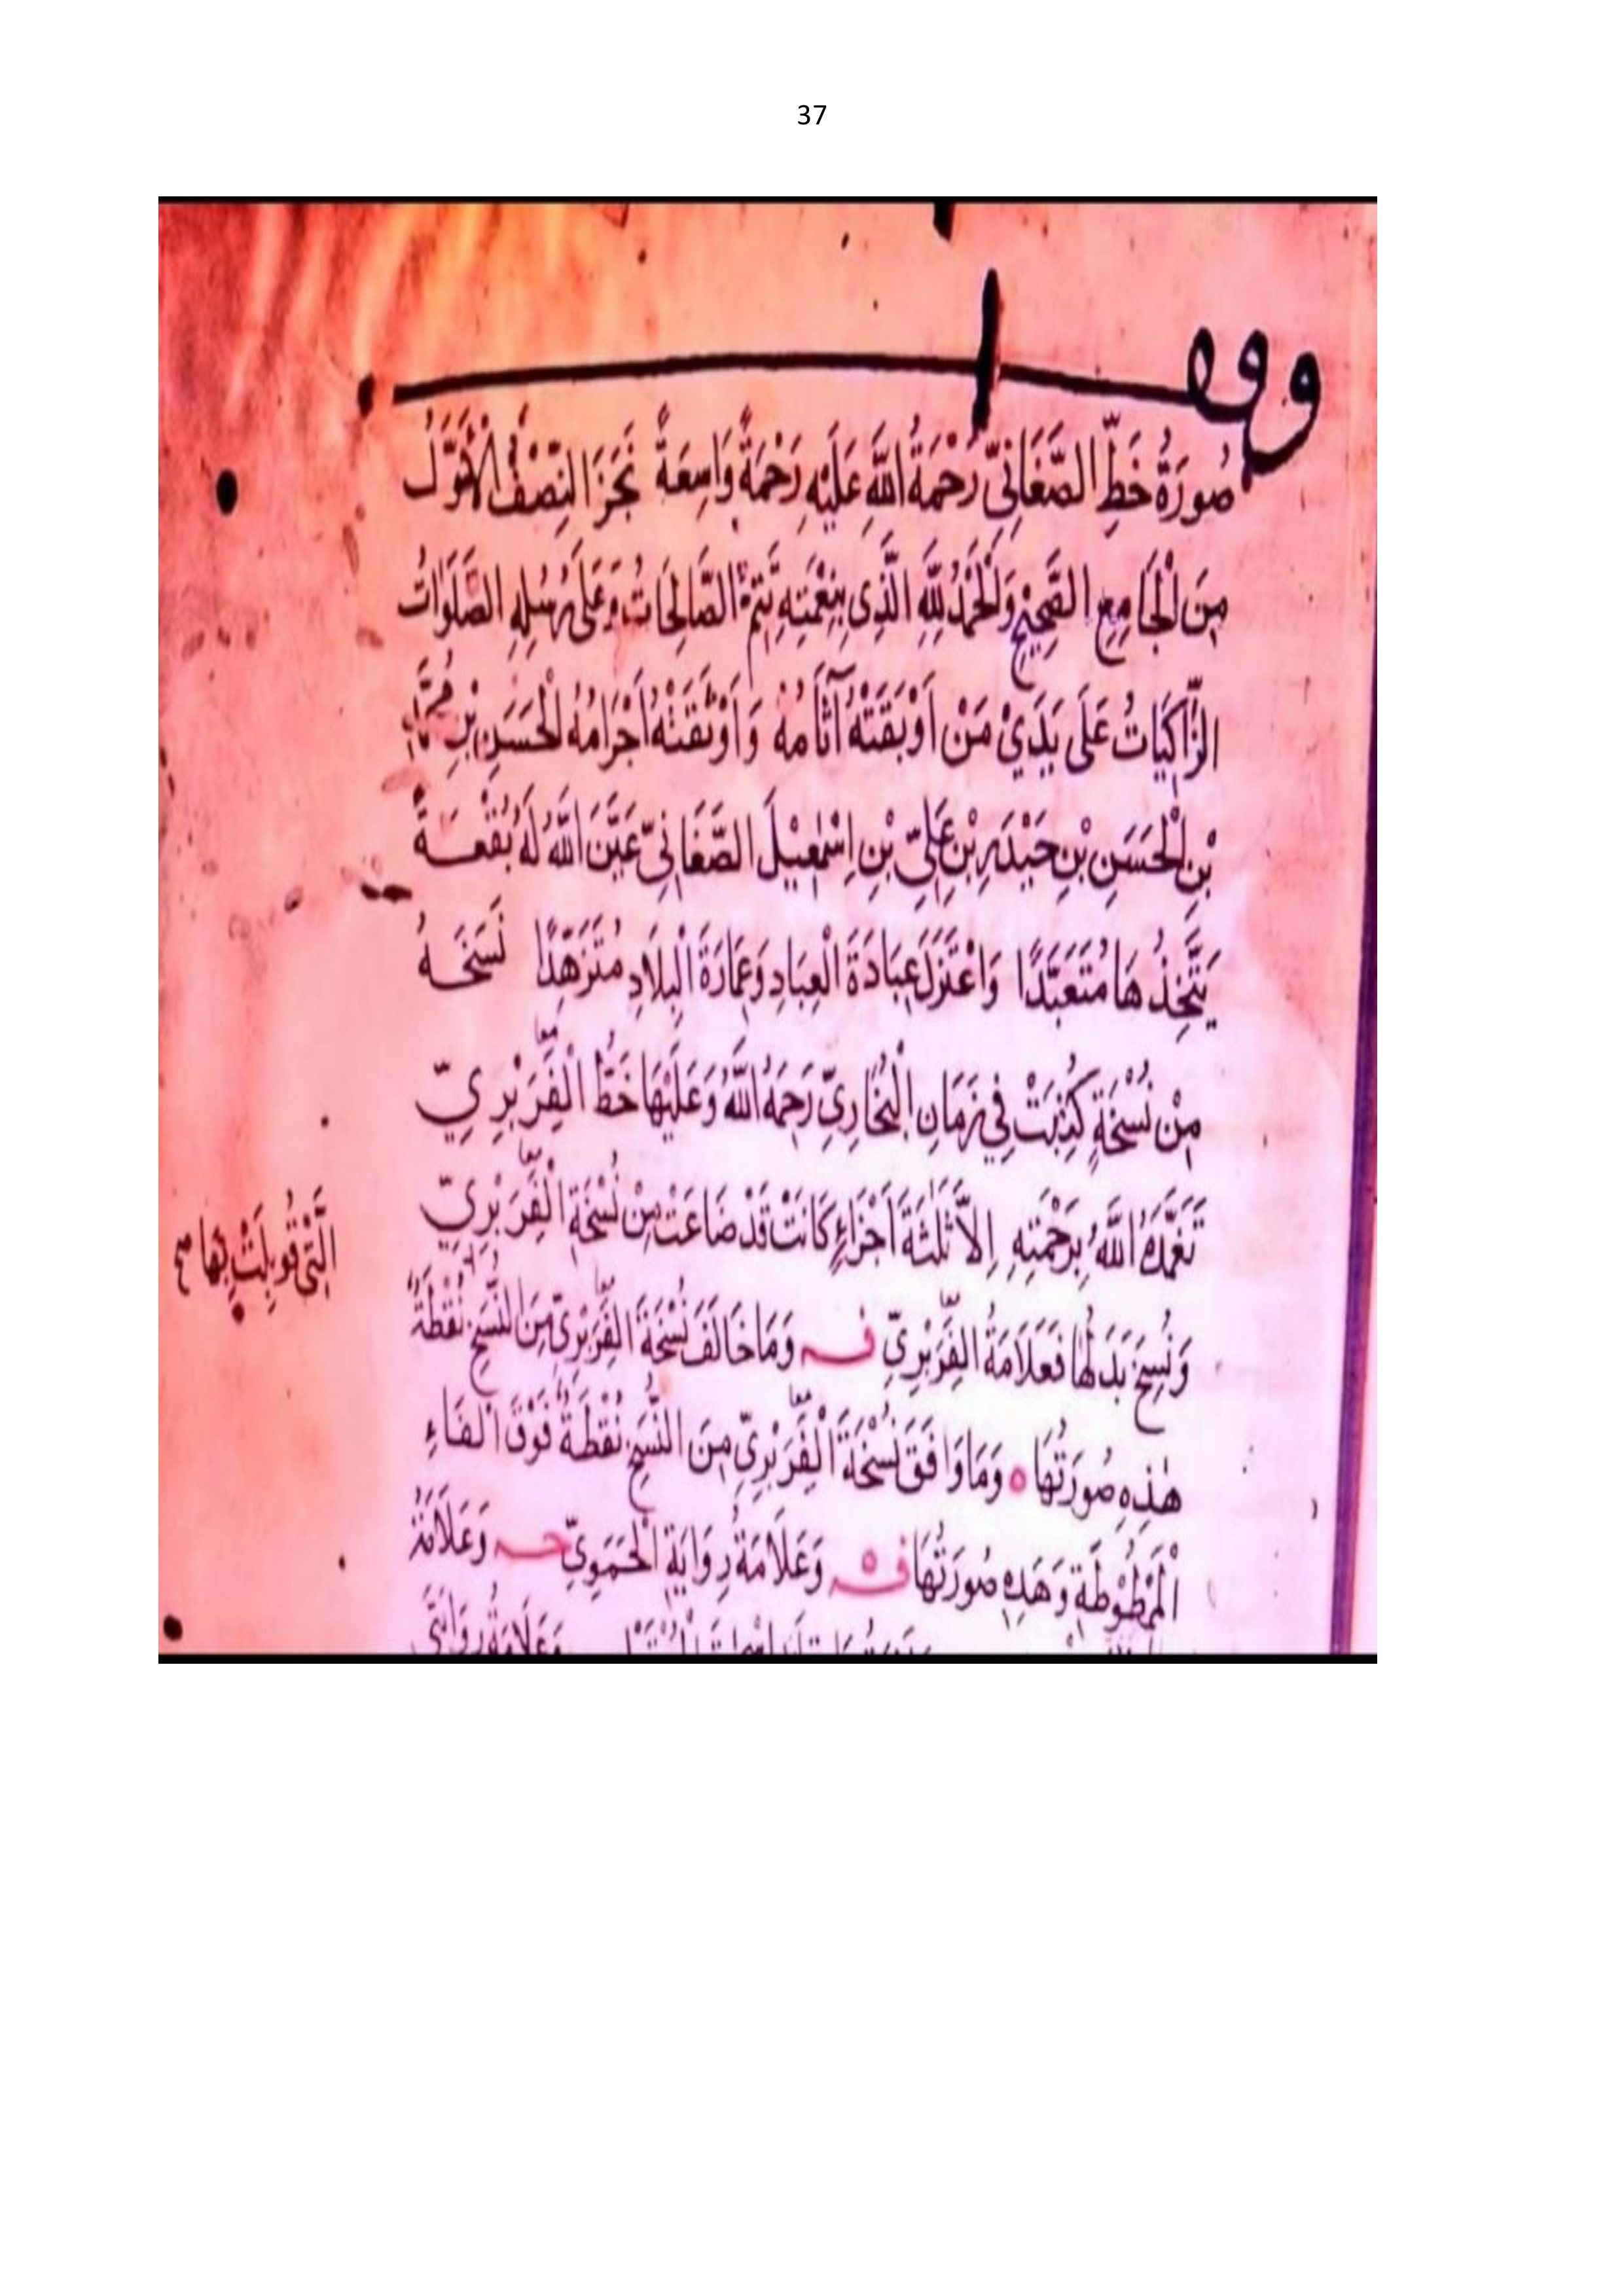 37
وقف
صُورَةُ خَطِّ الصَّغَانِيِّ رَحْمَةُ اللَّهِ عَلَيْهِ رَحْمَةً وَاسِعَةً نَجَزَ النِّصْفُ الْأَوَّلُ
مِنَ الْجَامِعِ الصَّحِيْحِ وَالْحَمْدُ لِلَّهِ الَّذِي بِنِعْمَتِهِ تَتِمُّ الصَّالِحَاتُ وَعَلَى رُسُلِهِ الصَّلَوَاتُ
الزَّاكِيَاتُ عَلَى يَدَيْ مَنْ أَوْبَقَتْهُ آثَامُهُ وَأَوْثَقَتْهُ أَجْرَامُهُ الْحَسَنِ بْنِ مُحَمَّدِ
بْنِ الْحَسَنِ بْنِ حَيْدَرِ بْنِ عَلِيِّ بْنِ إِسْمٰعِيْلَ الصَّغَانِيِّ عَيَّنَ اللَّهُ لَهُ بُقْعَةً
يَتَّخِذُهَا مُتَعَبَّدًا وَاعْتَزَلَ عِبَادَةَ الْعِبَادِ وَعِمَارَةَ الْبِلَادِ مُتَزَهِّدًا نَسَخَهُ
مِنْ نُسْخَةٍ كُتِبَتْ فِي زَمَانِ الْبُخَارِيِّ رَحِمَهُ اللَّهُ وَعَلَيْهَا خَطُّ الْفِرَبْرِيِّ معا
تَغَمَّدَهُ اللَّهُ بِرَحْمَتِهِ إِلَّا ثَلٰثَةَ أَجْزَاءٍ كَانَتْ قَدْ ضَاعَتْ مِنْ نُسْخَةِ الْفِرَبْرِيِّ معا
الَّتِي قُوبِلَتْ بِهَا صح
وَنُسِخَ بَدَلُهَا فَعَلَامَةُ الْفِرَبْرِيِّ فـ وَمَا خَالَفَ نُسْخَةَ الْفِرَبْرِيِّ مِنَ النُّسَخِ نُقْطَةٌ معا
هٰذِهِ صُورَتُهَا ه وَمَا وَافَقَ نُسْخَةَ الْفِرَبْرِيِّ مِنَ النُّسَخِ نُقْطَةٌ فَوْقَ الْفَاءِ معا
الْمَمْطُوْطَةِ وَهَذِهِ صُورَتُهَا فـه وَعَلَامَةُ رِوَايَةِ الْحَمَوِيِّ حـ وَعَلَامَةُ